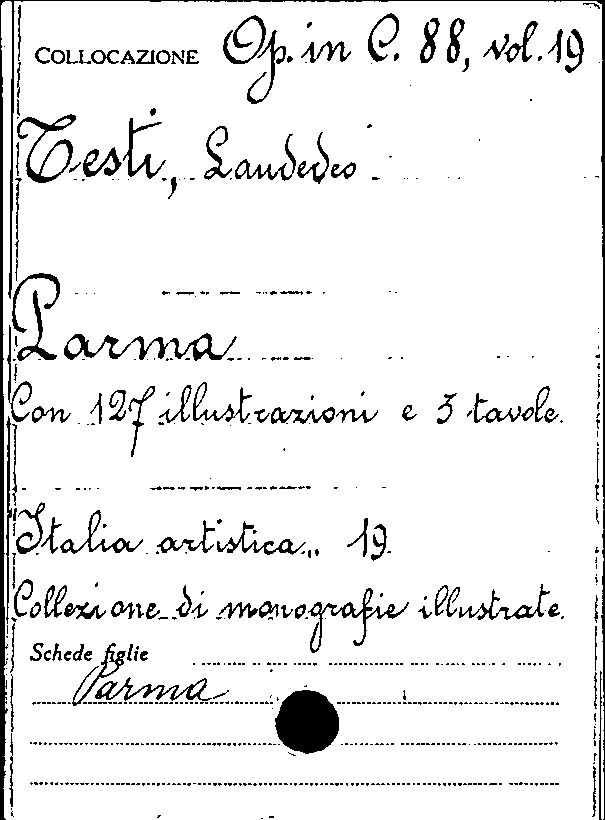 COLLOCAZIONE Op. in C. 88, vol. 19
Testi, Laudedeo
Parma
Con 127 illustrazioni e 3 tavole.
Italia artistica,, 19
Collezione di monografie illustrate.
Schede figlie
Parma